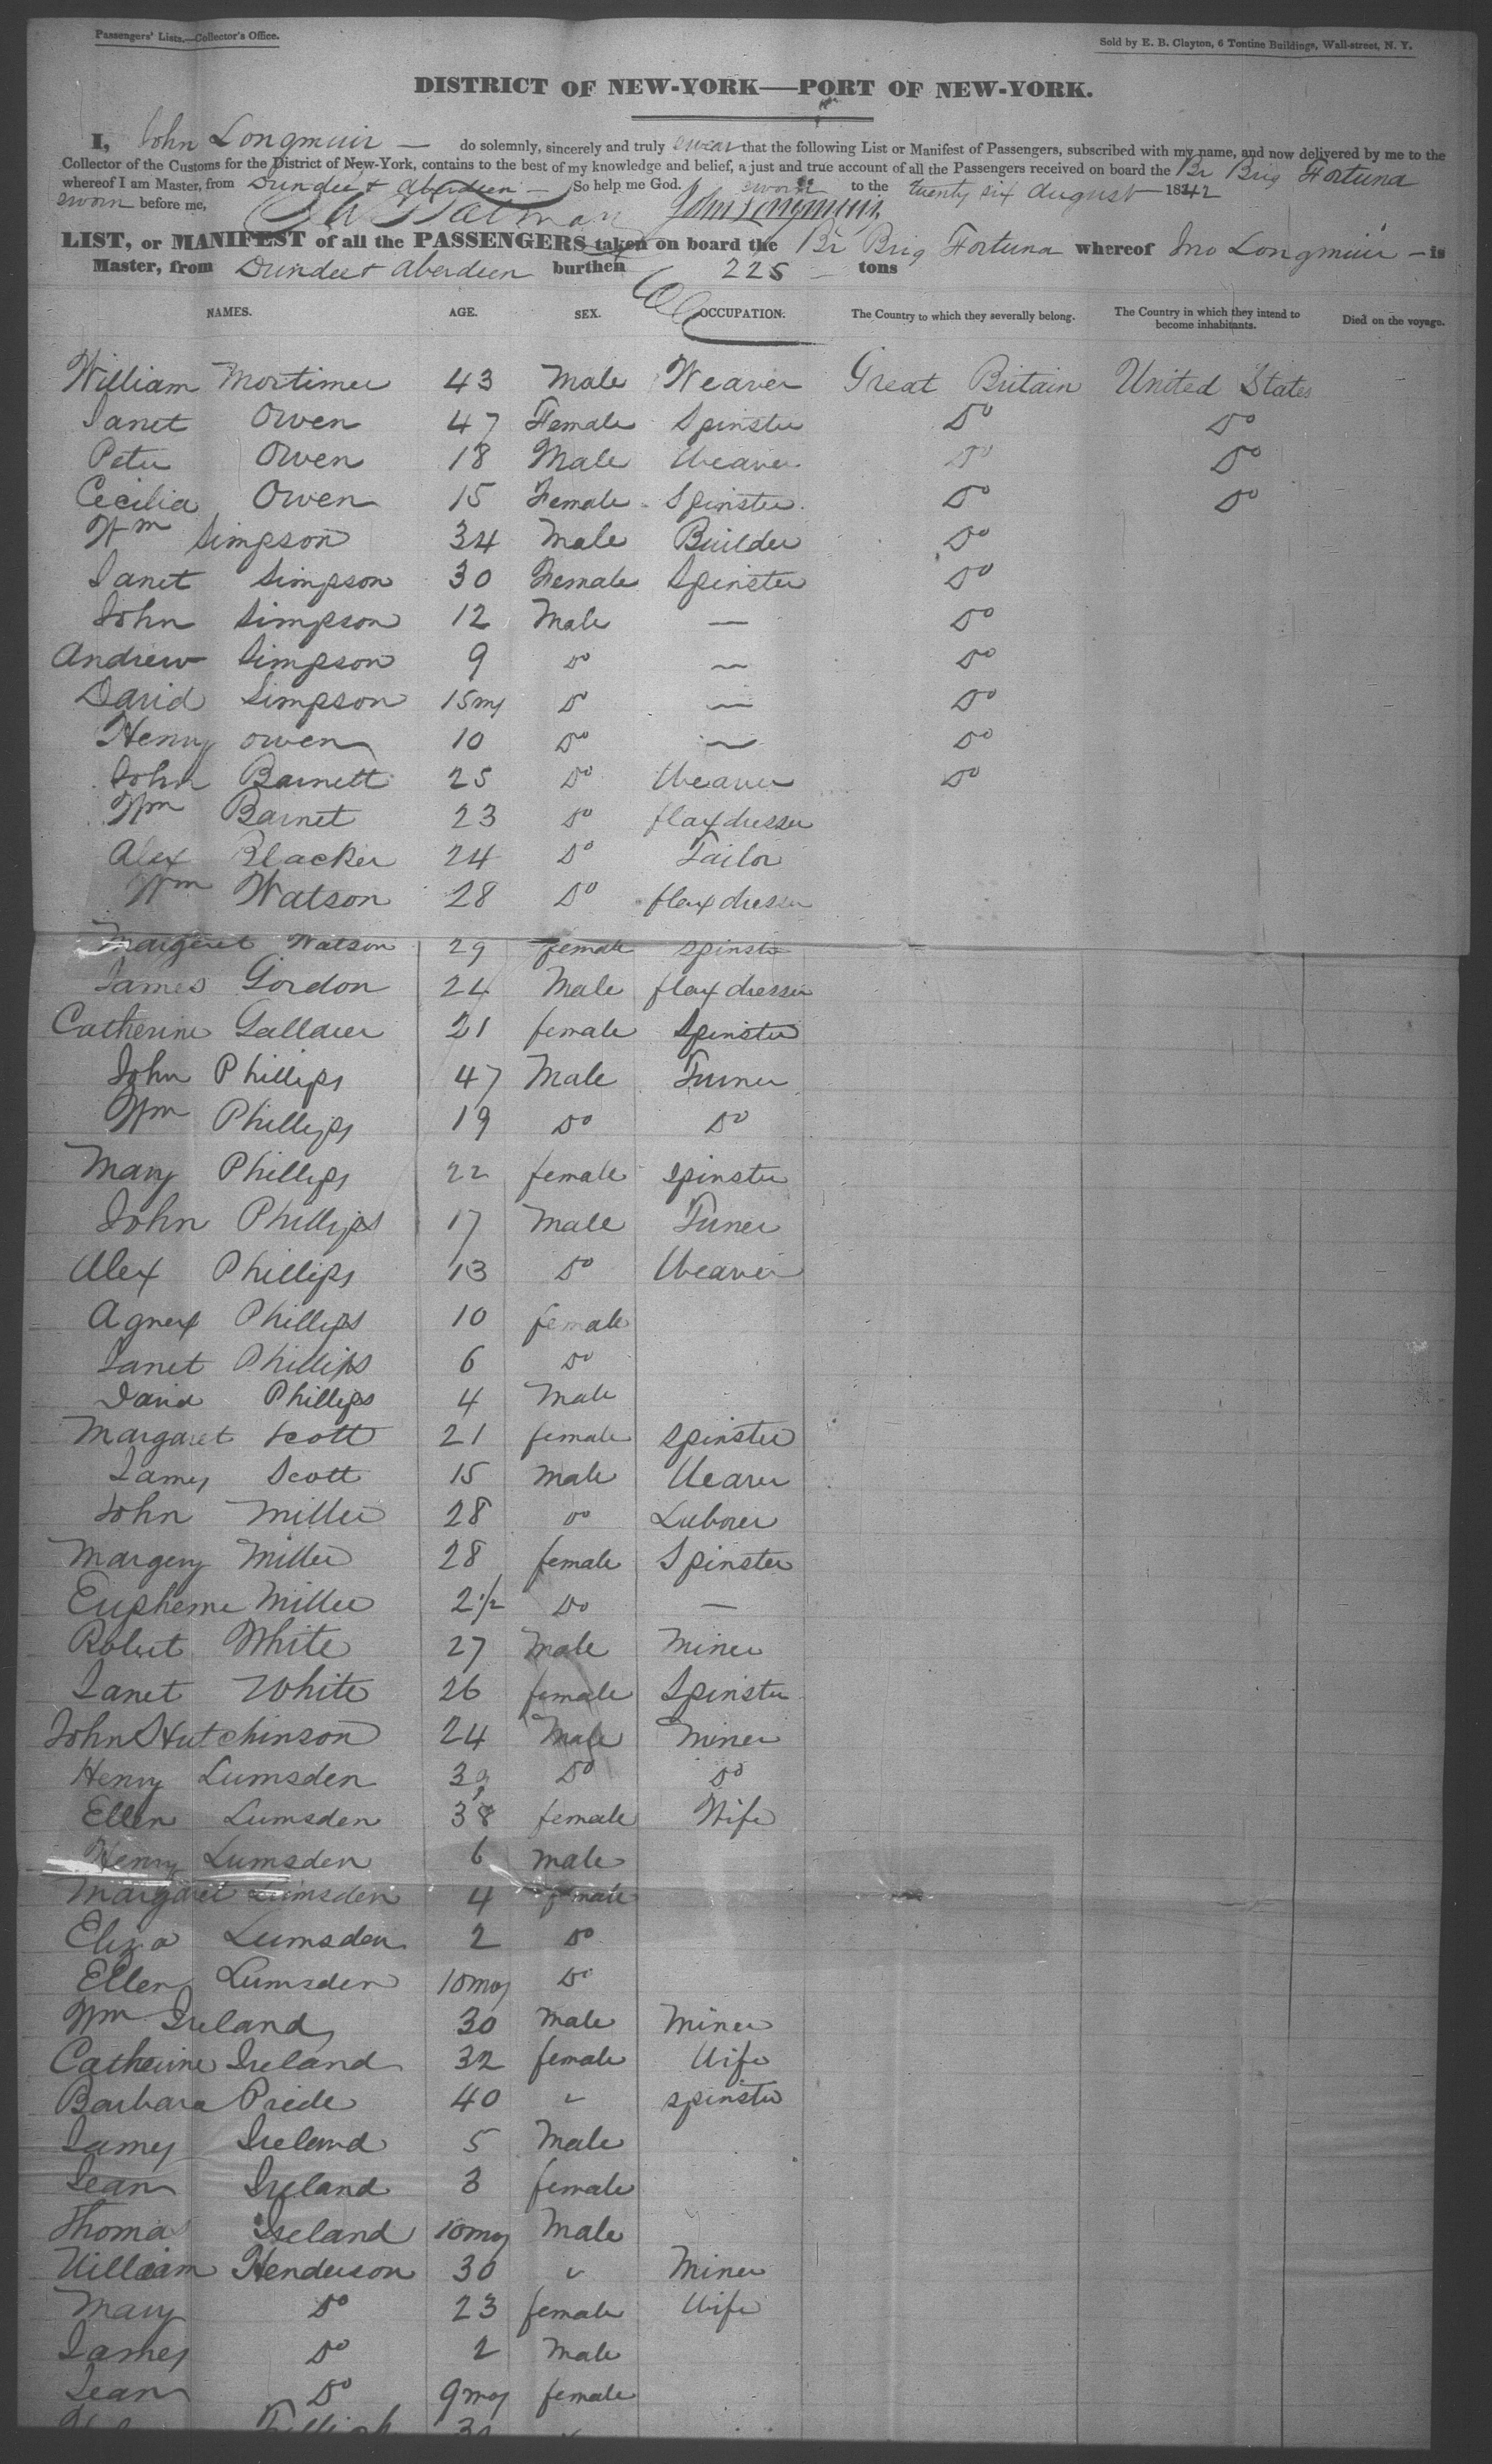 Passengers' Lists.—Collector's Office.
Sold by E. B. Clayton, 6 Tontine Buildings, Wall-street, N. Y.
DISTRICT OF NEW-YORK—PORT OF NEW-YORK.
I, John Longmuir — do solemnly, sincerely and truly swear that the following List or Manifest of Passengers, subscribed with my name, and now delivered by me to the
Collector of the Customs for the District of New-York, contains to the best of my knowledge and belief, a just and true account of all the Passengers received on board the Br Brig Fortuna
whereof I am Master, from Dundee & Aberdeen — So help me God. sworn to the twenty six August 1842
sworn before me, John Longmuir
LIST, or MANIFEST of all the PASSENGERS taken on board the Br Brig Fortuna whereof Jno Longmuir — is
Master, from Dundee & Aberdeen burthen 225 — tons
NAMES. AGE. SEX. OCCUPATION. The Country to which they severally belong. The Country in which they intend to become inhabitants. Died on the voyage.
William Mortimer 43 Male Weaver Great Britain United States
Janet Owen 47 Female Spinster Do Do
Peter Owen 18 Male Weaver Do Do
Cecilia Owen 15 Female Spinster Do Do
Wm Simpson 34 Male Builder Do
Janet Simpson 30 Female Spinster Do
John Simpson 12 Male — Do
Andrew Simpson 9 Do — Do
David Simpson 15 ms Do — Do
Henry Owen 10 Do — Do
John Barnett 25 Do Weaver Do
Wm Barnet 23 Do flaxdresser
Alex Blacker 24 Do Tailor
Wm Watson 28 Do flaxdresser
Margaret Watson 29 female Spinster
James Gordon 24 Male flaxdresser
Catherine 21 female Spinster
John Phillips 47 Male Turner
Wm Phillips 19 Do Do
Mary Phillips 22 female spinster
John Phillips 17 Male Turner
Alex Phillips 13 Do Weaver
Agnes Phillips 10 female
Janet Phillips 6 Do
David Phillips 4 Male
Margaret Scott 21 female spinster
James Scott 15 male Weaver
John Miller 28 Do Laborer
Margery Miller 28 female Spinster
Eupheme Miller 2 1/2 Do —
Robert White 27 Male Miner
Janet White 26 female Spinster
John Hutchinson 24 Male Miner
Henry Lumsden Do Do
Ellen Lumsden 38 female Wife
Henry Lumsden 6 male
Margaret Lumsden 4 female
Eliza Lumsden 2 Do
Ellen Lumsden 10mos Do
Wm Ireland 30 Male Miner
Catherine Ireland 32 female Wife
Barbara Pride 40 " spinster
James Ireland 5 Male
Jean Ireland 3 female
Thomas Ireland 10mos Male
William Henderson 30 " Miner
Mary Do 23 female Wife
James Do 2 Male
Jean Do 9mos female